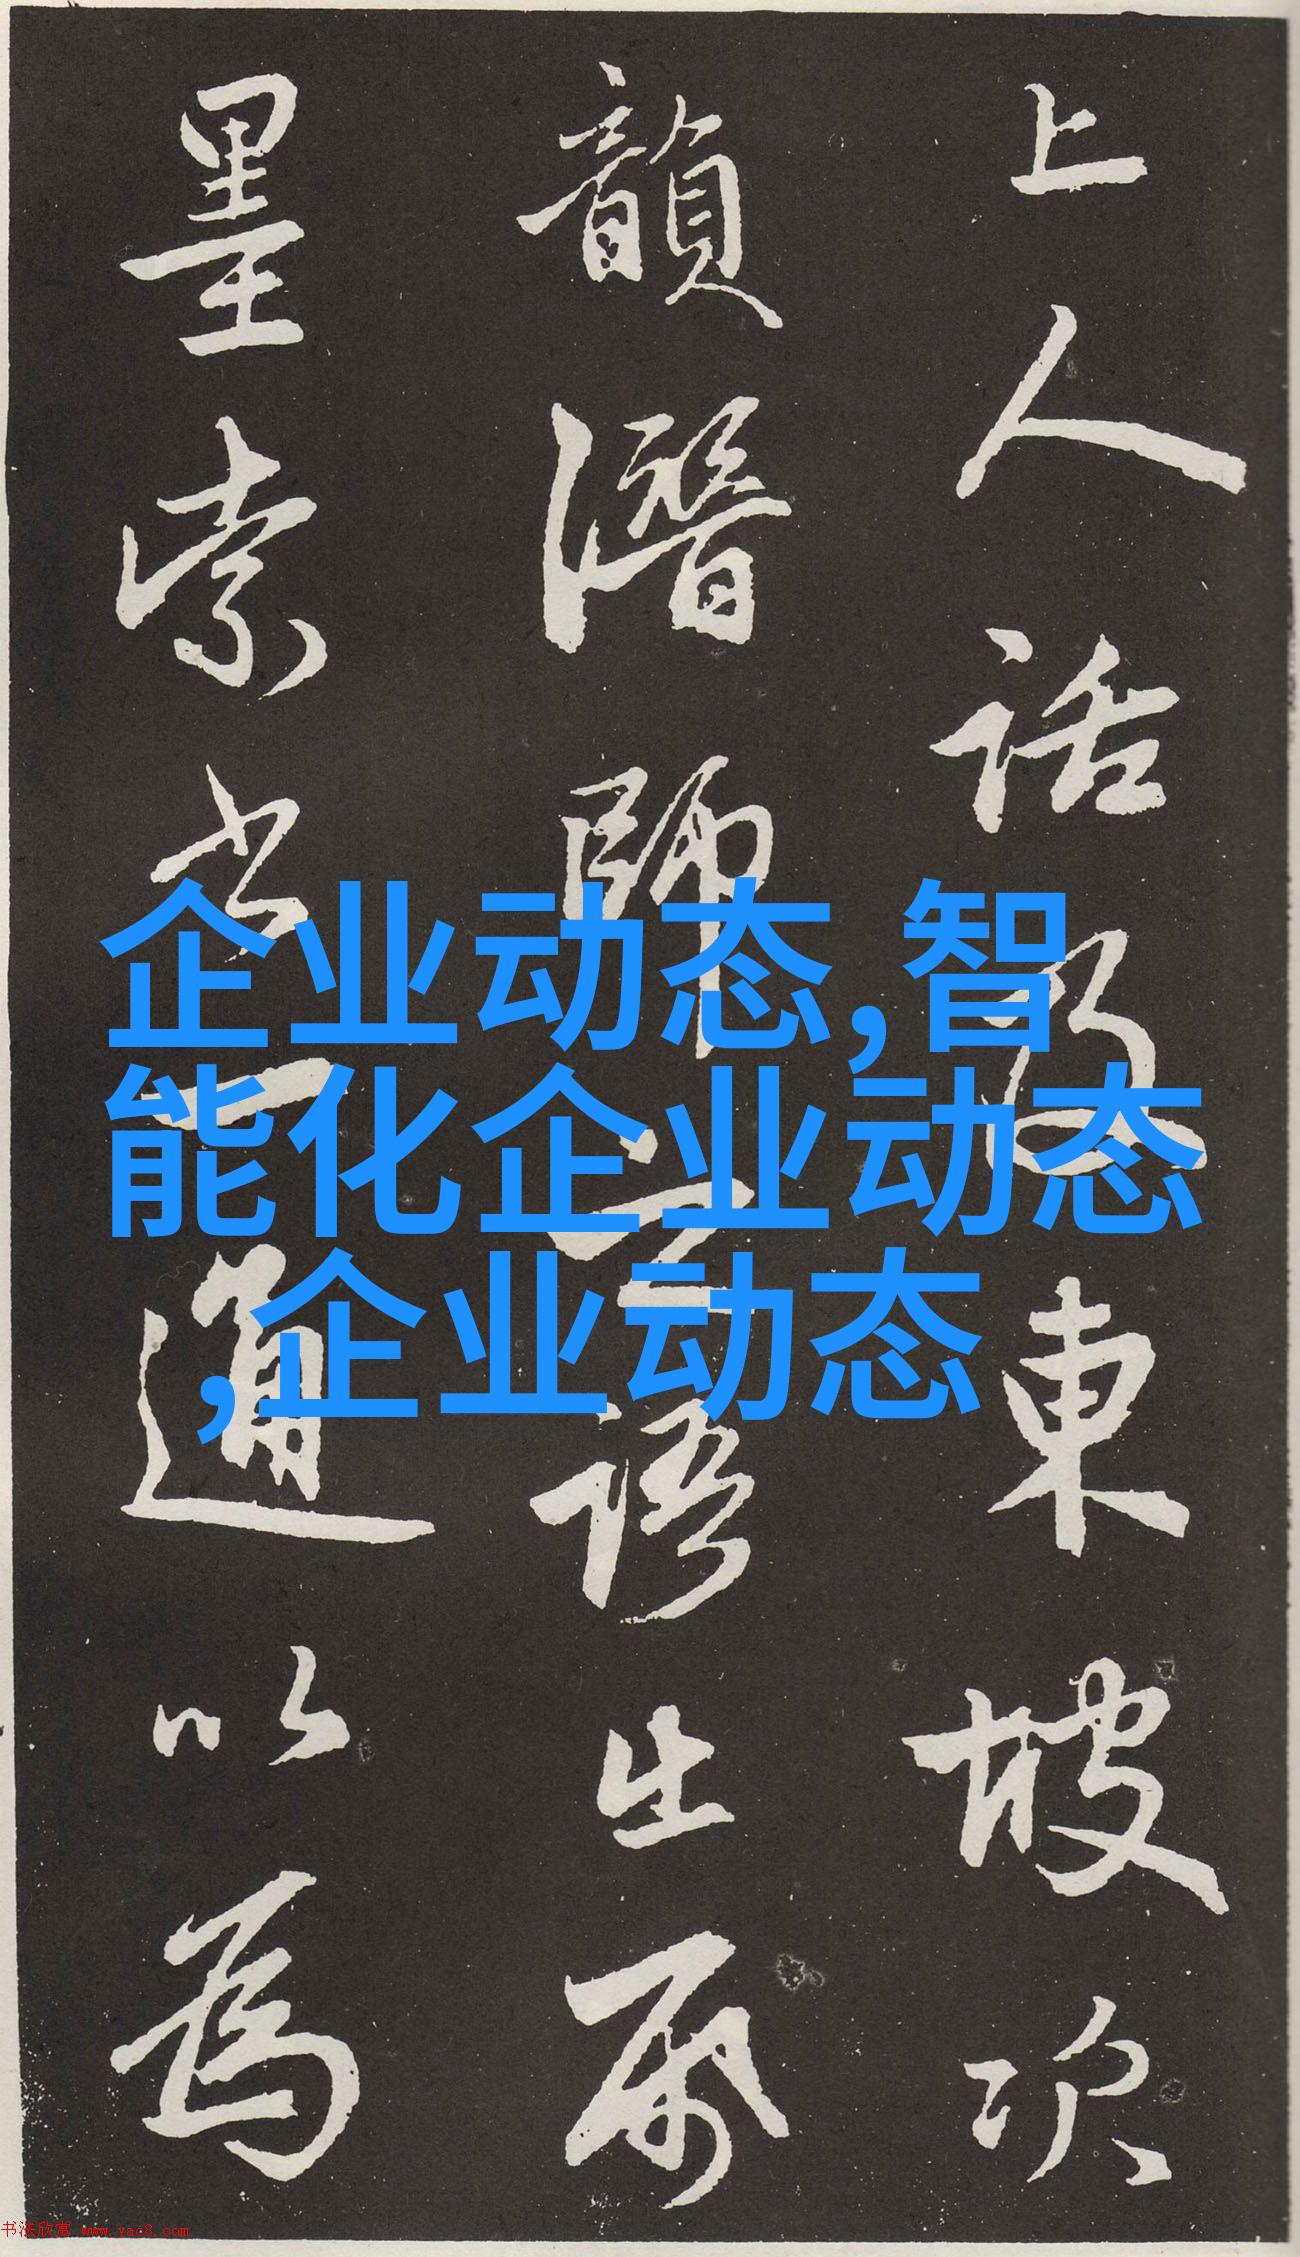 上人話及東坡次
韻潛師
語出
墨索書一通以為
企业动态,智
能化企业动态
,企业动态
书法欣赏 www.yac8.com